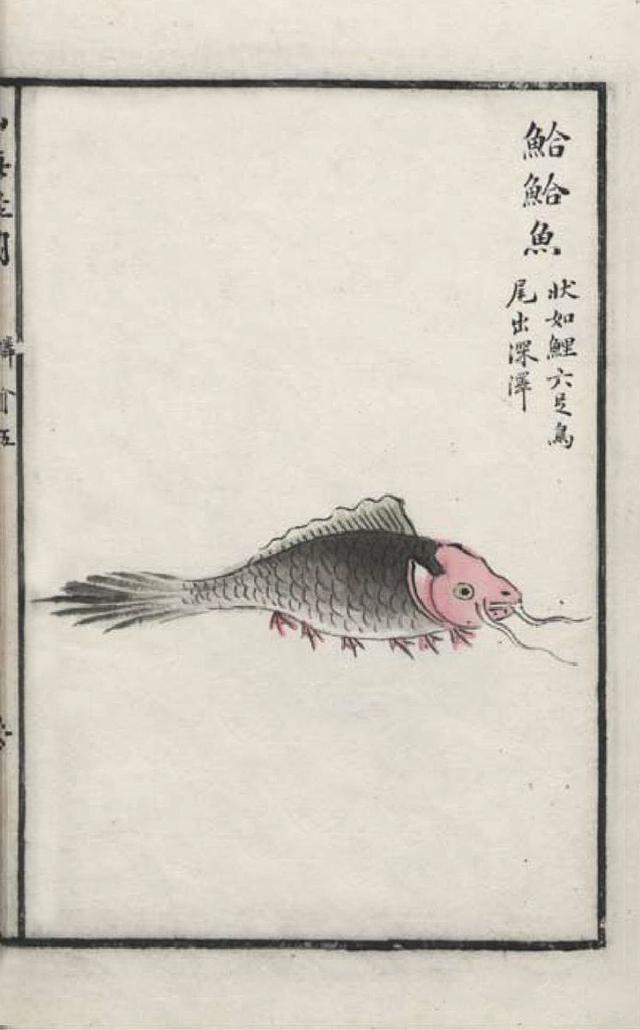 鮯鮯魚
狀如鯉六足鳥
尾出深澤